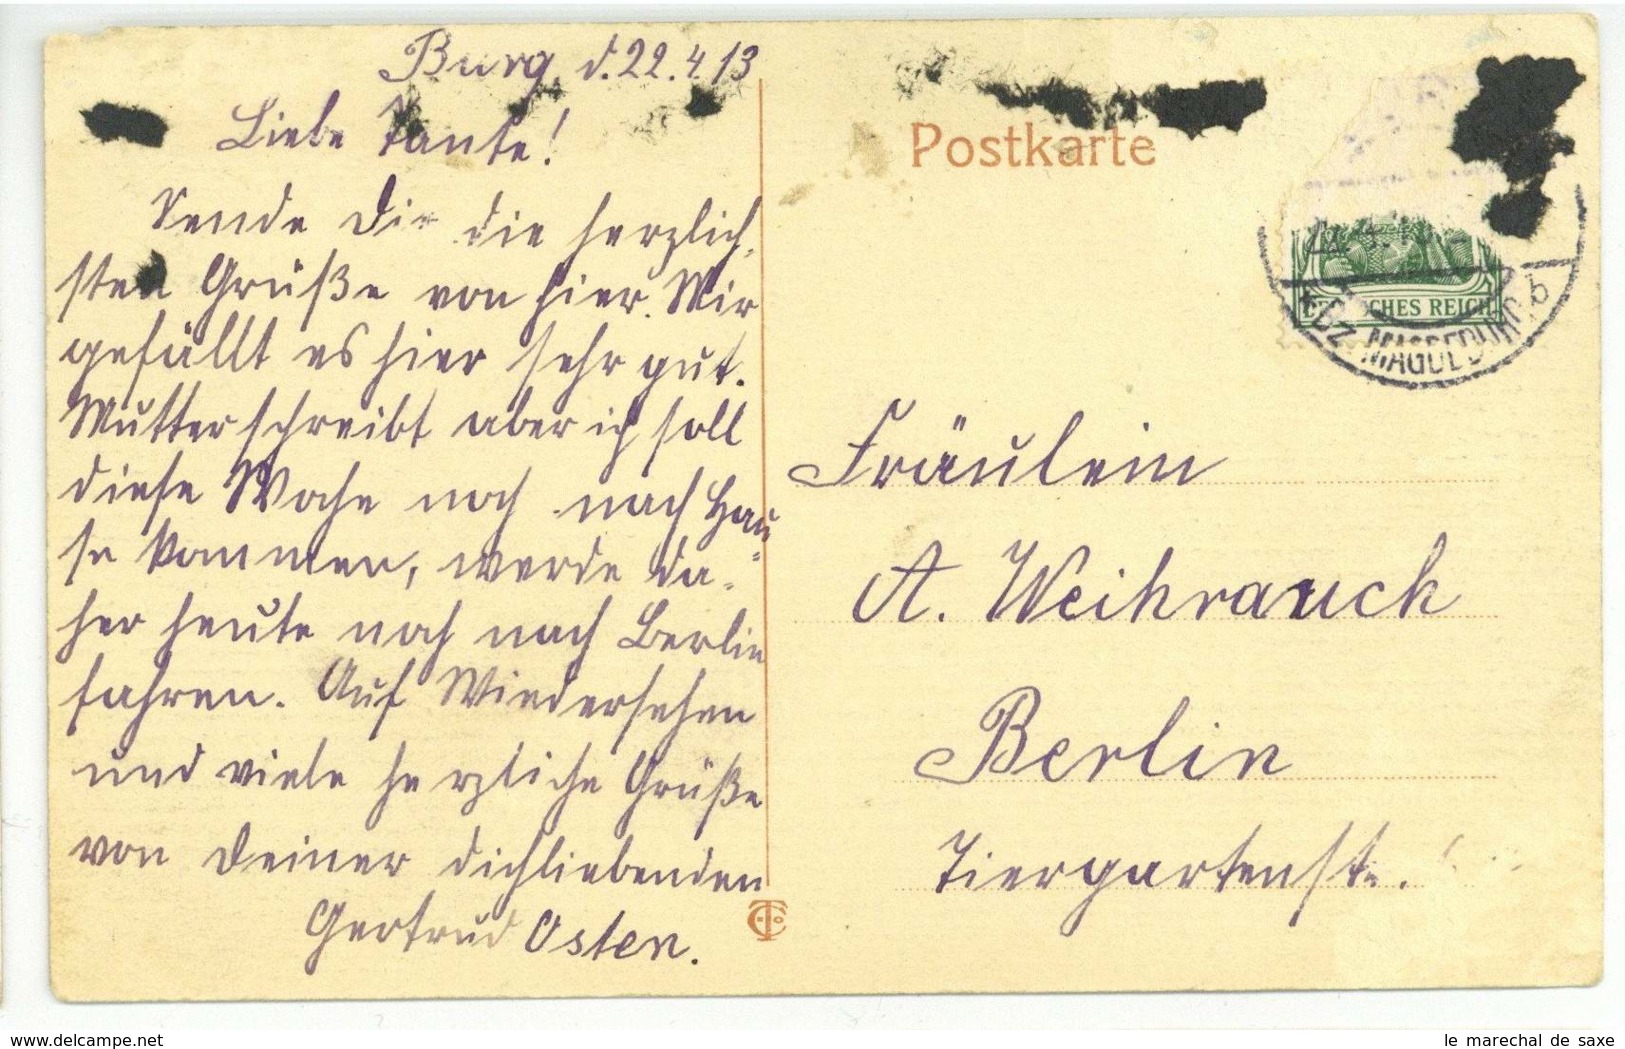 Burg, d. 22.4.13
Liebe Tante!
Sende Dir die herzlich-
sten Grüße von hier. Mir
gefällt es hier sehr gut.
Mutter schreibt aber ich soll
diese Woche noch nach Hau-
se kommen, werde da-
her heute noch nach Berlin
fahren. Auf Wiedersehen
und viele herzliche Grüße
von Deiner dichliebenden
Gertrud Osten.
Postkarte
CHES REICH
MAGDEBURG b
Fräulein
A. Weihrauch
Berlin
Tiergartenst.
delcampe.net
le marechal de saxe